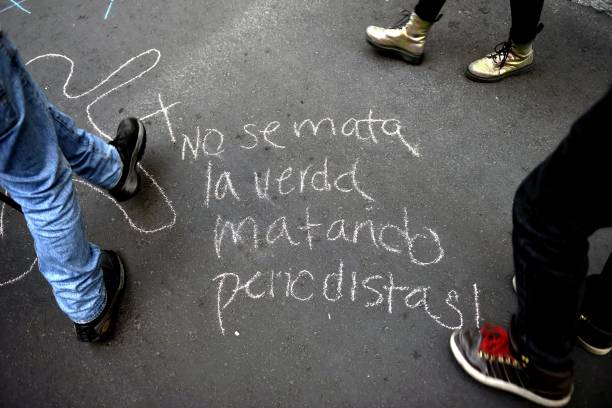 No se mata
la verda
matando
periodistas!